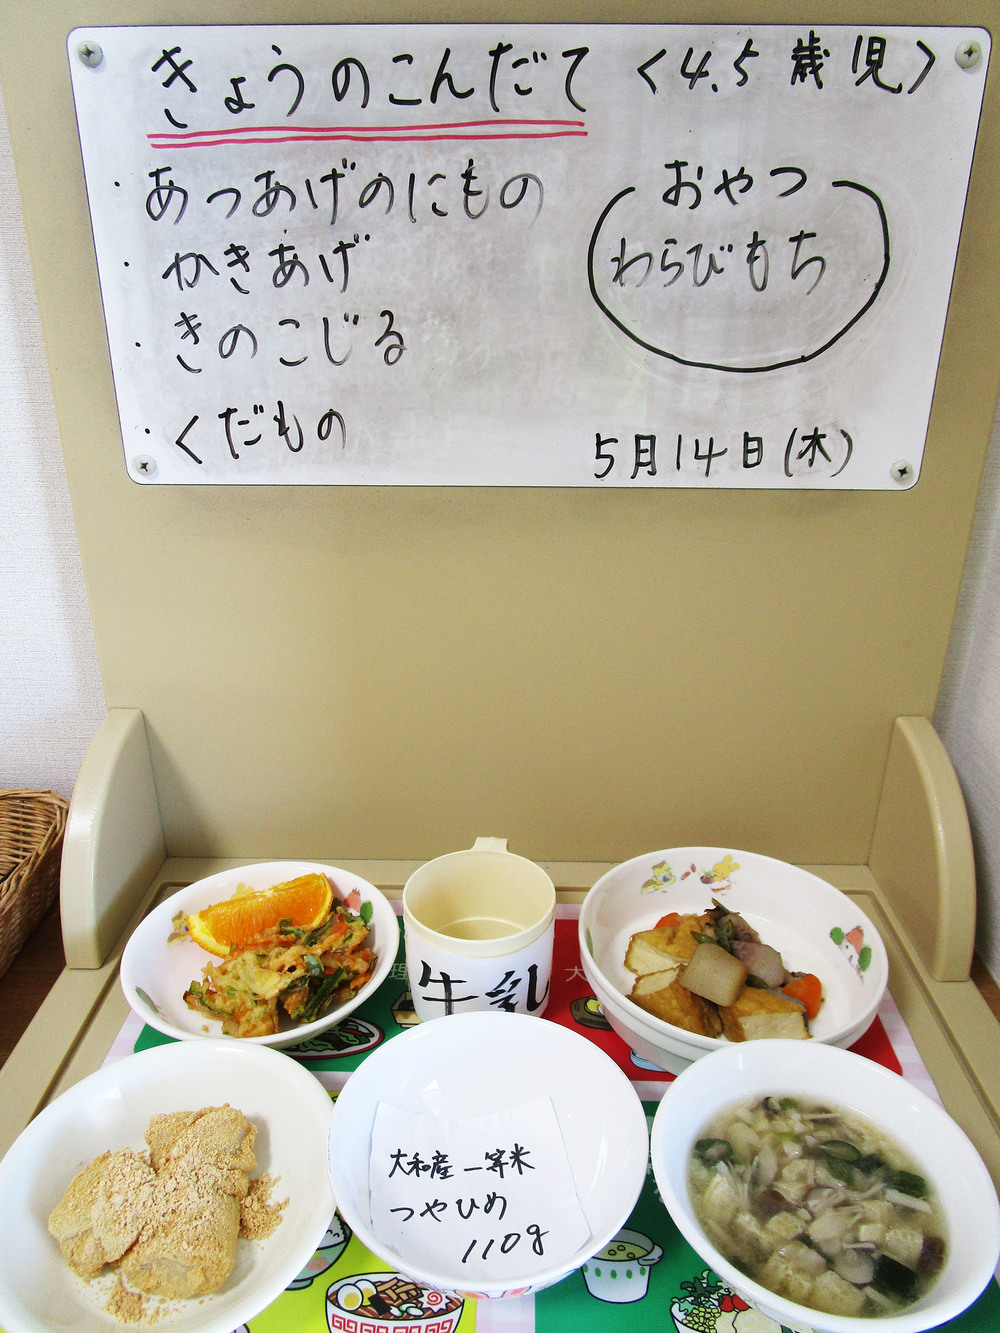 きょうのこんだて 〈4.5歳児〉
・あつあげのにもの
・かきあげ
・きのこじる
・くだもの
おやつ
わらびもち
5月14日(木)
牛乳
理
大
大和産一等米
つやひめ
110g